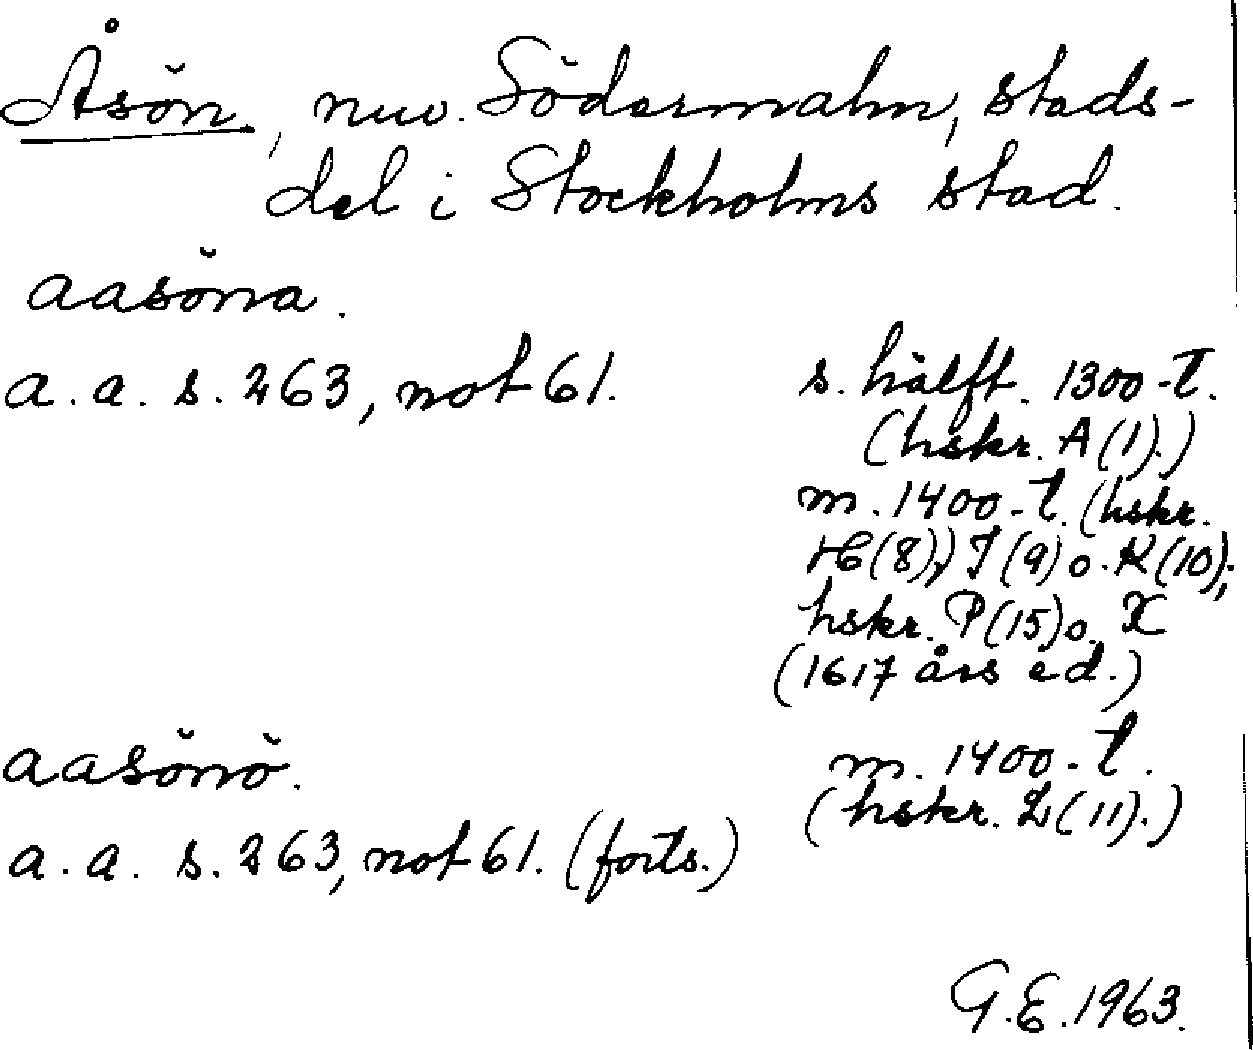 Åsön, nuv. Södermalm, stads-
del i Stockholms stad.
aasöna.
a. a. s. 263, not 61.
s. hälft. 1300-t.
(hskr. A (1).)
m. 1400-t. (hskr.
H (8), I (9) o. K (10);
hskr. P (15) o. X
(1617 års ed.)
aasönö.
m. 1400-t.
(hskr. L (11).)
a. a. s. 263, not 61. (forts.)
G.E. 1963.